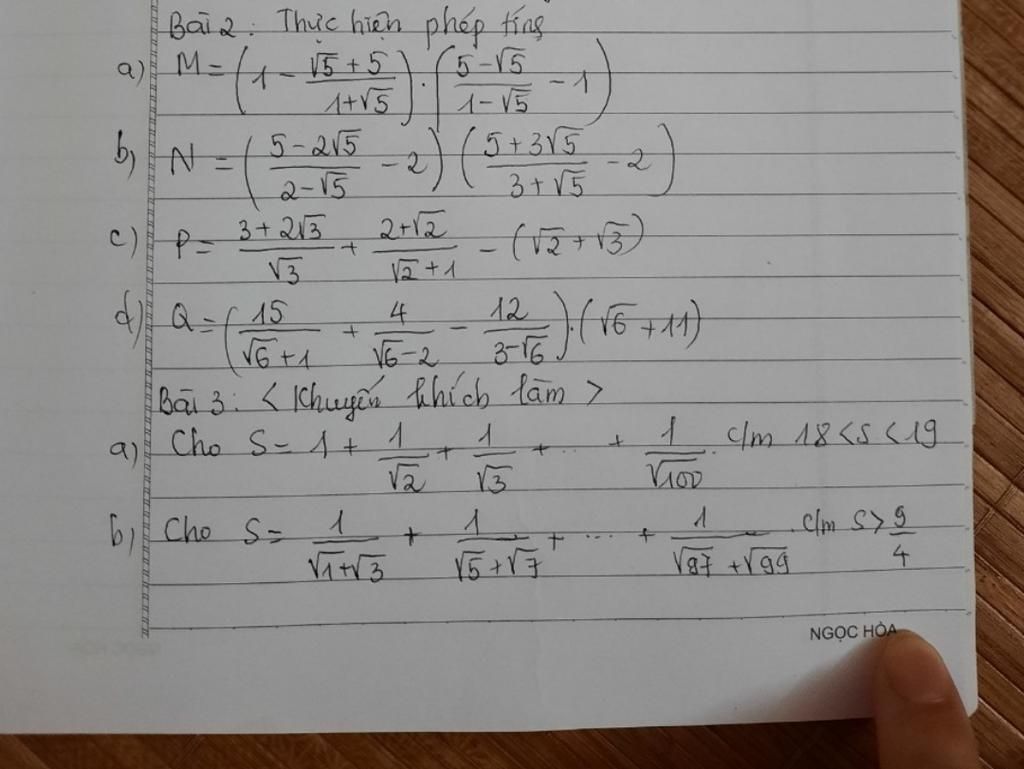 Bài 2: Thực hiện phép tính
a) M = (1 - (√5 + 5)/(1 + √5)) . ((5 - √5)/(1 - √5) - 1)
b) N = ((5 - 2√5)/(2 - √5) - 2) ((5 + 3√5)/(3 + √5) - 2)
c) P = (3 + 2√3)/√3 + (2 + √2)/(√2 + 1) - (√2 + √3)
d) Q = (15/(√6 + 1) + 4/(√6 - 2) - 12/(3 - √6)) . (√6 + 11)
Bài 3: < Khuyến khích làm >
a) Cho S = 1 + 1/√2 + 1/√3 + ... + 1/√100. c/m 18 < S < 19
b) Cho S = 1/(√1 + √3) + 1/(√5 + √7) + ... + 1/(√97 + √99) . c/m S > 9/4
NGỌC HÒA